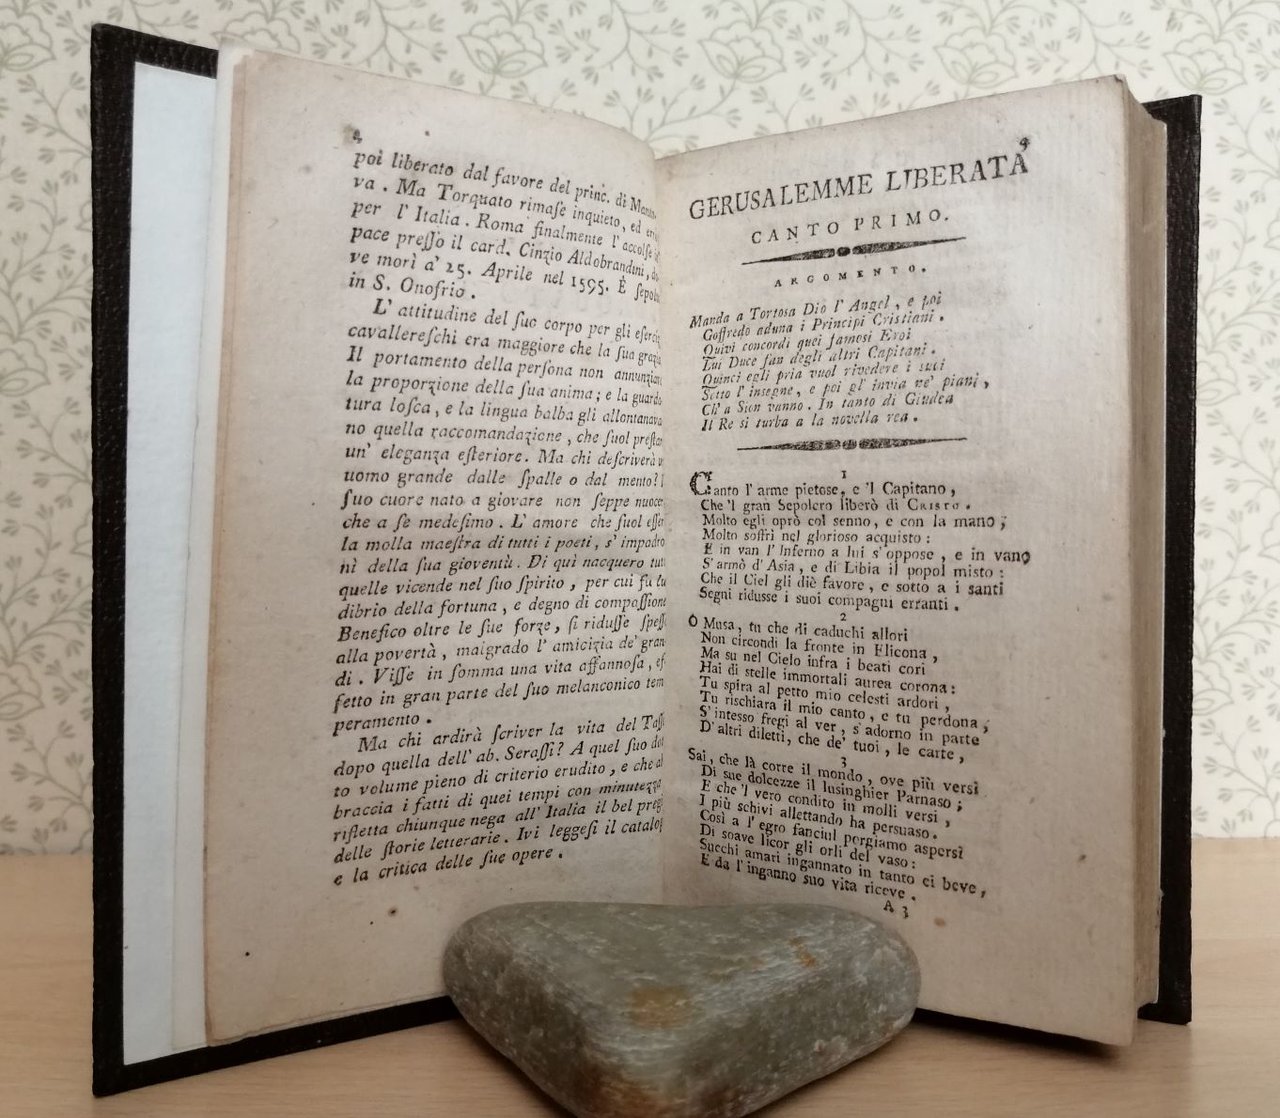 poi liberato dal favore del princ. di
va. Ma Torquato rimaſe inquieto, ed
per l'Italia. Roma finalmente l'accolſe
pace preſſo il card. Cinzio Aldobrandini,
ve morì a' 25. Aprile nel 1595. È
in S. Onofrio.
L'attitudine del ſuo corpo per gli
cavallereſchi era maggiore che la ſua
Il portamento della perſona non
la proporzione della ſua anima; e la
tura loſca, e la lingua balba gli
no quella raccomandazione, che ſuol
un' eleganza eſteriore. Ma chi deſcriverà
uomo grande dalle ſpalle o dal mento?
ſuo cuore nato a giovare non ſeppe
che a ſe medeſimo. L'amore che ſuol
la molla maeſtra di tutti i poeti, s'
nì della ſua gioventù. Di quì nacquero
quelle vicende nel ſuo ſpirito, per cui fu
dibrio della fortuna, e degno di compaſſione
Benefico oltre le ſue forze, ſi riduſſe
alla povertà, malgrado l'amicizia de'
di. Viſſe in ſomma una vita affannoſa,
fetto in gran parte del ſuo melanconico tem
peramento.
Ma chi ardirà ſcriver la vita del
dopo quella dell' ab. Seraſſi? A quel ſuo
to volume pieno di criterio erudito, e che
braccia i fatti di quei tempi con minutezza
rifletta chiunque nega all' Italia il bel
delle ſtorie letterarie. Ivi leggeſi il
e la critica delle ſue opere.
GERUSALEMME LIBERATA
CANTO PRIMO.
ARGOMENTO.
Manda a Tortosa Dio l'Angel, e poi
Goffredo aduna i Principi Cristiani.
Quivi concordi quei famosi Eroi
Lui Duce fan degli altri Capitani.
Quinci egli pria vuol rivedere i suoi
Sotto l'insegne, e poi gl' invia ne' piani,
Ch' a Sion vanno. In tanto di Giudea
Il Re si turba a la novella rea.
1
Canto l'arme pietose, e 'l Capitano,
Che 'l gran Sepolcro liberò di CRISTO.
Molto egli oprò col senno, e con la mano;
Molto soffrì nel glorioso acquisto:
E in van l'Inferno a lui s'oppose, e in vano
S'armò d'Asia, e di Libia il popol misto:
Che il Ciel gli diè favore, e sotto a i santi
Segni ridusse i suoi compagni erranti.
2
O Musa, tu che di caduchi allori
Non circondi la fronte in Elicona,
Ma su nel Cielo infra i beati cori
Hai di stelle immortali aurea corona:
Tu spira al petto mio celesti ardori,
Tu rischiara il mio canto, e tu perdona;
S'intesso fregi al ver, s'adorno in parte
D'altri diletti, che de' tuoi, le carte,
3
Sai, che là corre il mondo, ove più versi
Di sue dolcezze il lusinghier Parnaso;
E che 'l vero condito in molli versi,
I più schivi allettando ha persuaso.
Così a l'egro fanciul porgiamo aspersi
Di soave licor gli orli del vaso:
Succhi amari ingannato in tanto ei beve,
E da l'inganno suo vita riceve.
A 3